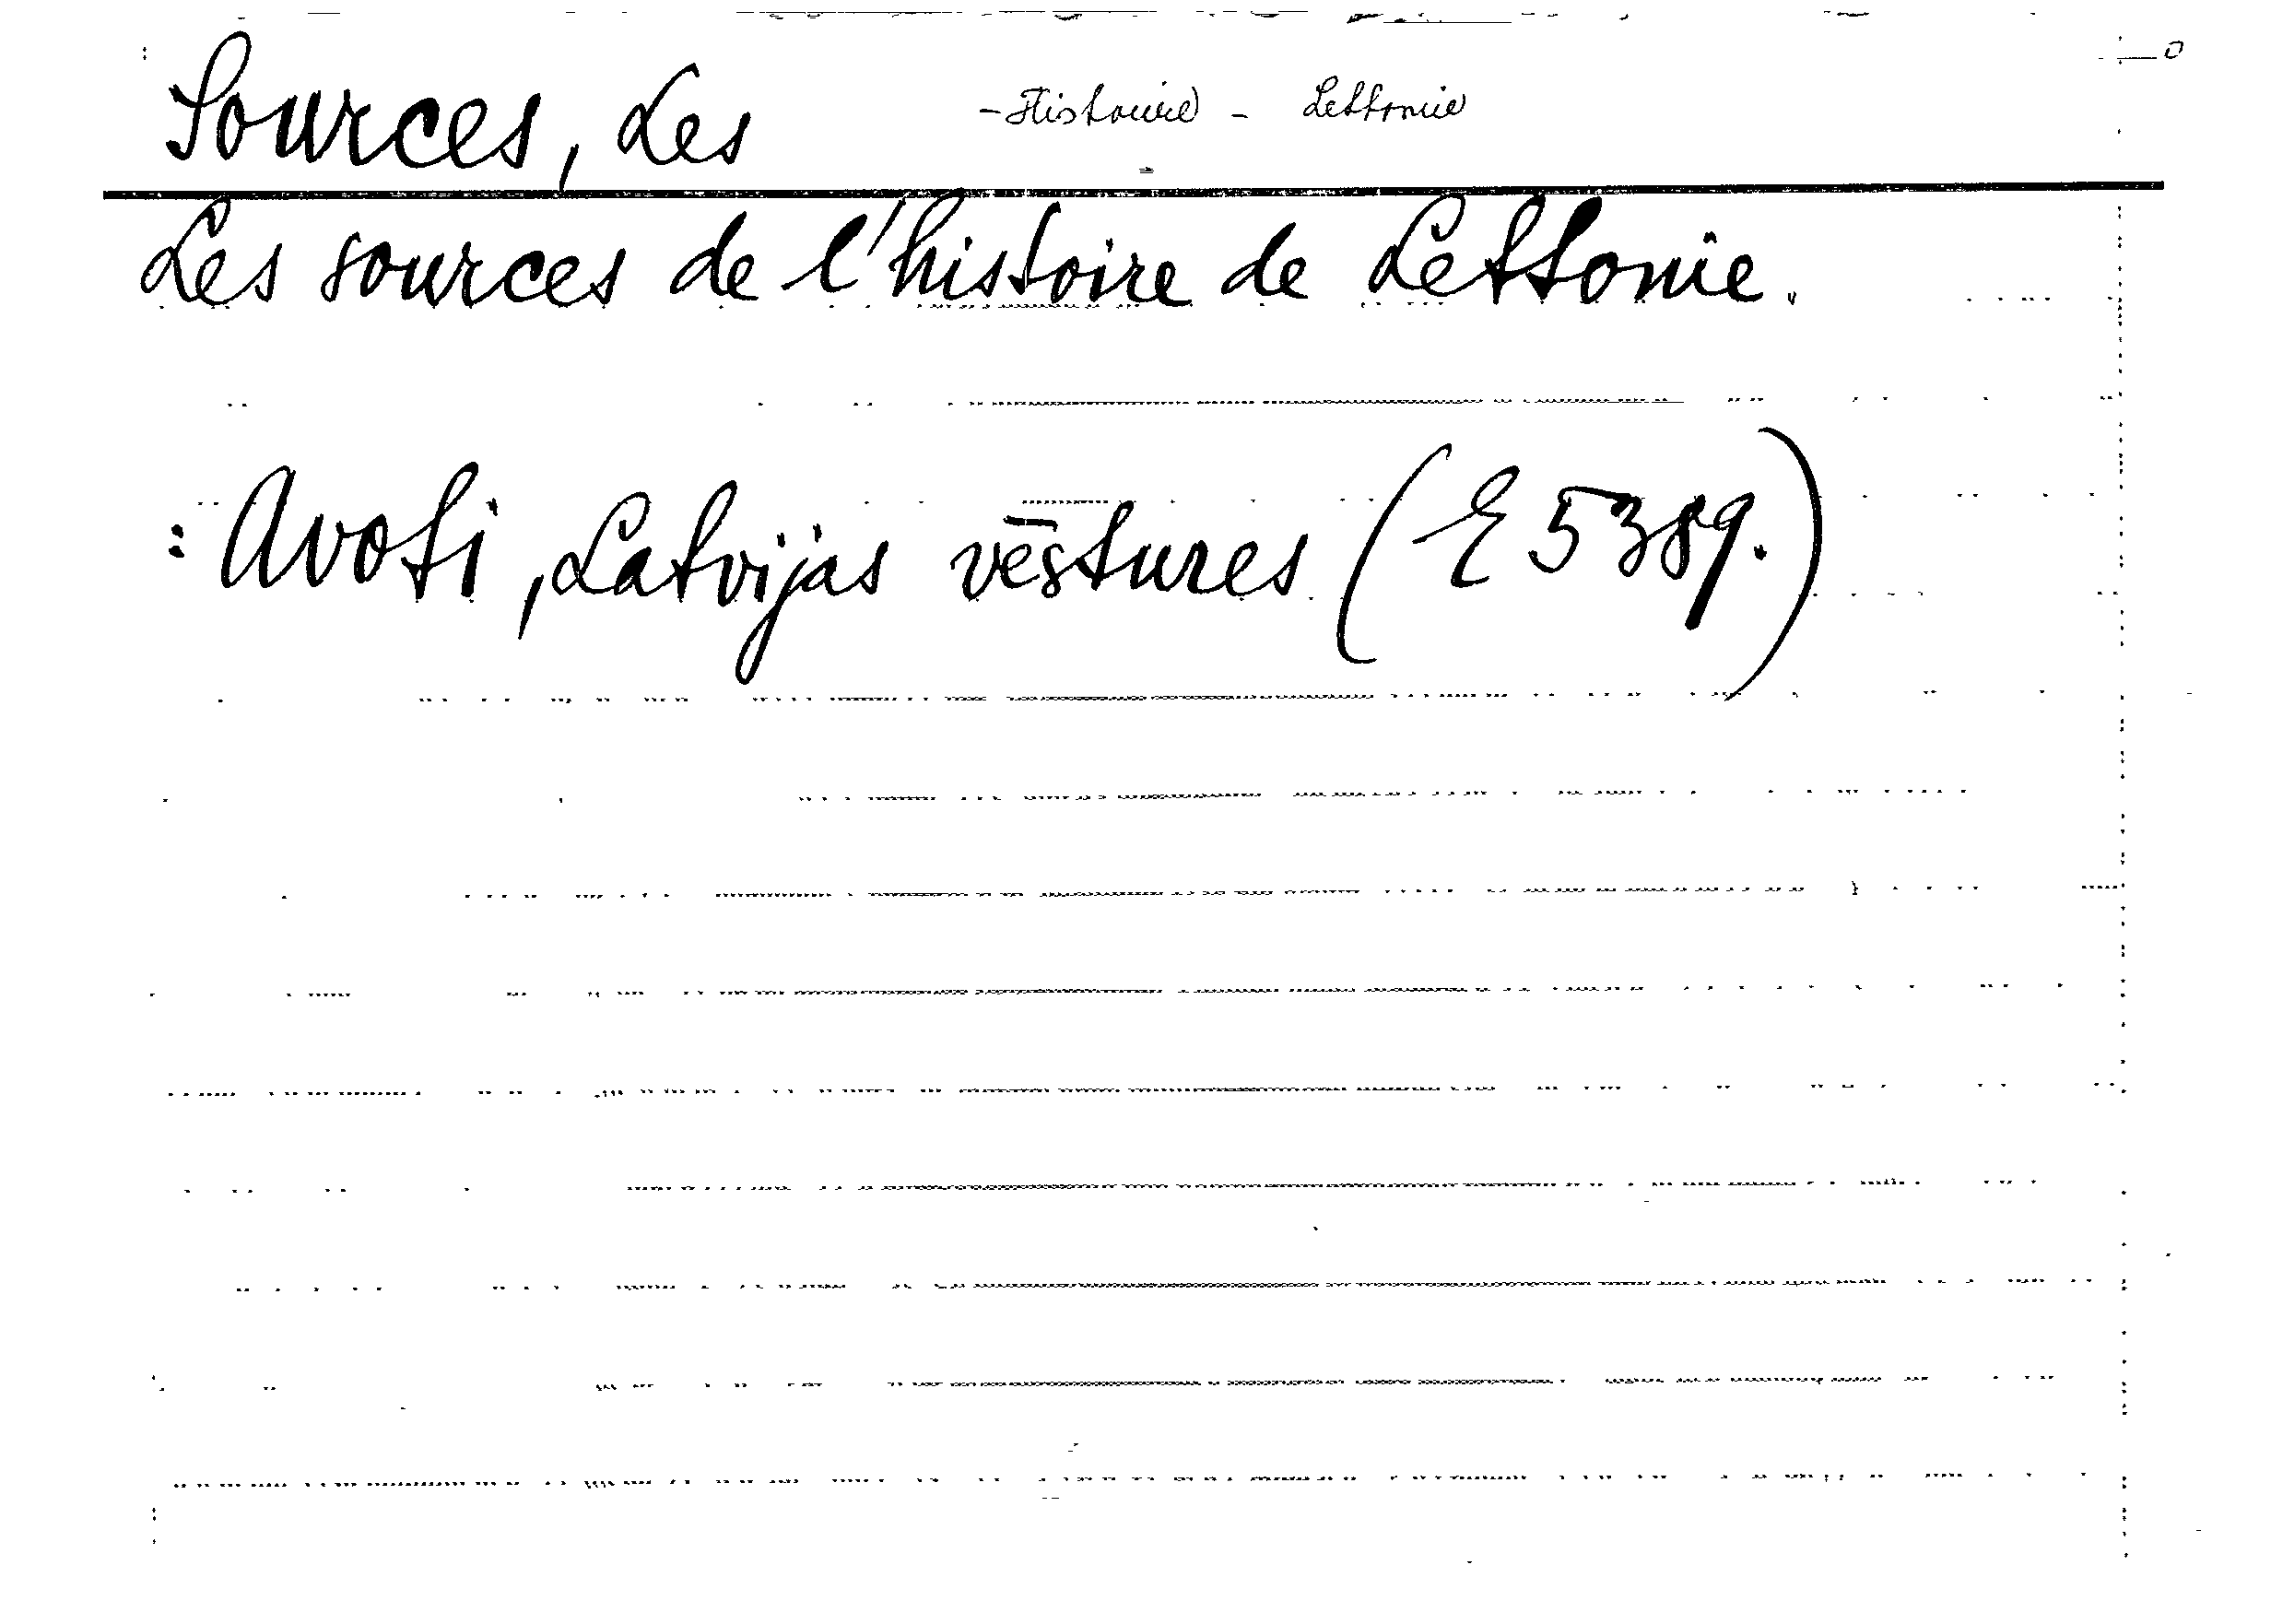 Sources, Les - Histoire - Lettonie
Les sources de l'histoire de Lettonie.
: Avoti, Latvijas vēstures (E 5389.)